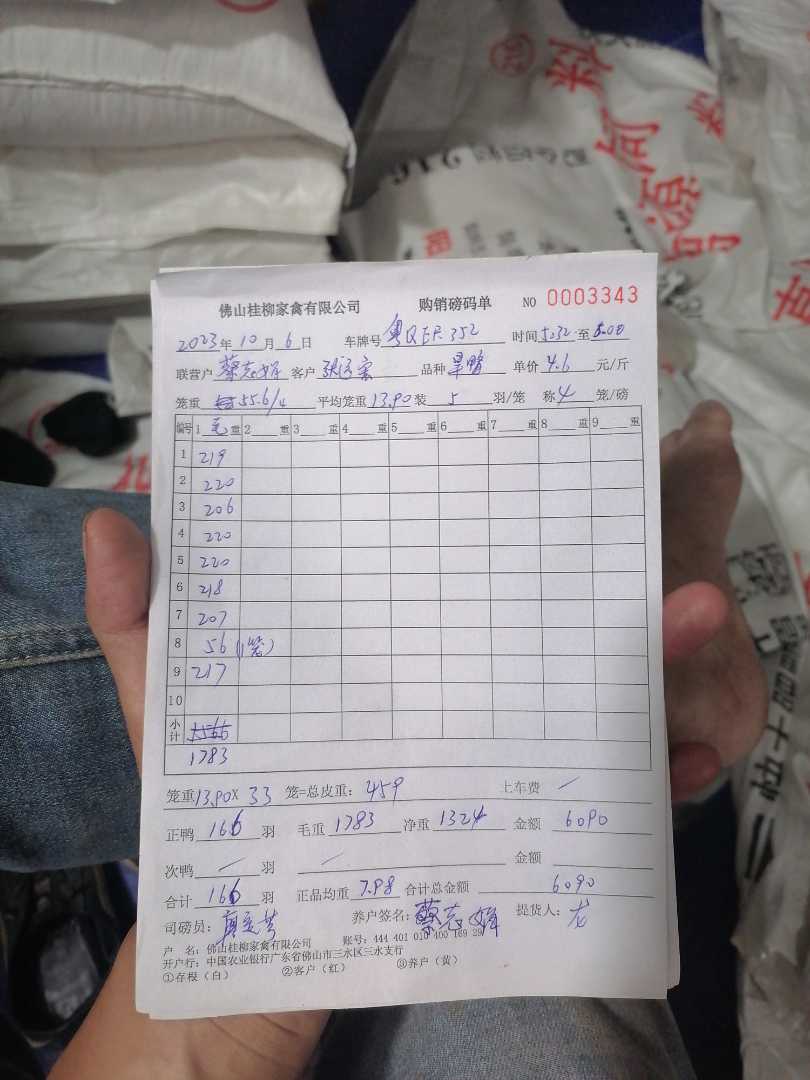 佛山桂柳家禽有限公司 购销磅码单 NO 0003343
2023年10月6日 车牌号 粤QER352 时间 5:32 至 6:00
联营户 蔡志婵 客户 品种 旱鸭 单价 4.6 元/斤
笼重 55.6/4 平均笼重 13.90 装 5 羽/笼 称 4 笼/磅
编号 1 毛 重 2 重 3 重 4 重 5 重 6 重 7 重 8 重 9 重
1 219
2 220
3 206
4 220
5 220
6 218
7 207
8 56 (1笼)
9 217
10
小计
1783
笼重 13.90 X 33 笼=总皮重: 459 上车费 /
正鸭 166 羽 毛重 1783 净重 1324 金额 6090
次鸭 / 羽 / 金额
合计 166 羽 正品均重 7.98 合计总金额 6090
司磅员: 养户签名: 蔡志婵 提货人: 龙
户 名: 佛山桂柳家禽有限公司 账号: 444 401 010 400 169 29
开户行: 中国农业银行广东省佛山市三水区三水支行
①存根(白) ②客户(红) ③养户(黄)